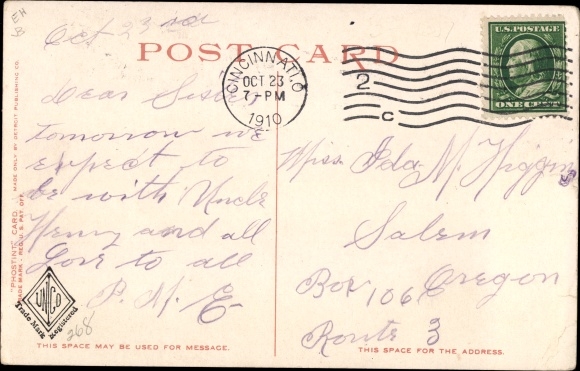 EH
Oct 23rd
POST CARD
CINCINNATI, O.
OCT 23
7-PM
1910
2
C
U.S. POSTAGE
ONE CENT
Dear Sister
tomorrow we
expect to
be with Uncle
Henry and all
Love to all
P. M. E
Miss. Ida. M. Higgins
Salem
Oregon
Box 106
Route 3
"PHOSTINT" CARD MADE ONLY BY DETROIT PUBLISHING CO.
TRADE MARK - REG. U.S. PAT. OFF.
UNCO
Trade Mark Registered
268
THIS SPACE MAY BE USED FOR MESSAGE.
THIS SPACE FOR THE ADDRESS.